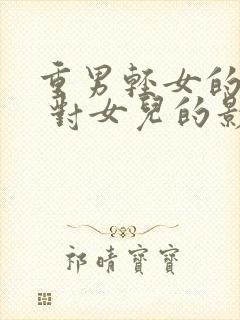 重男輕女的
對女兒的影
祁晴寶寶